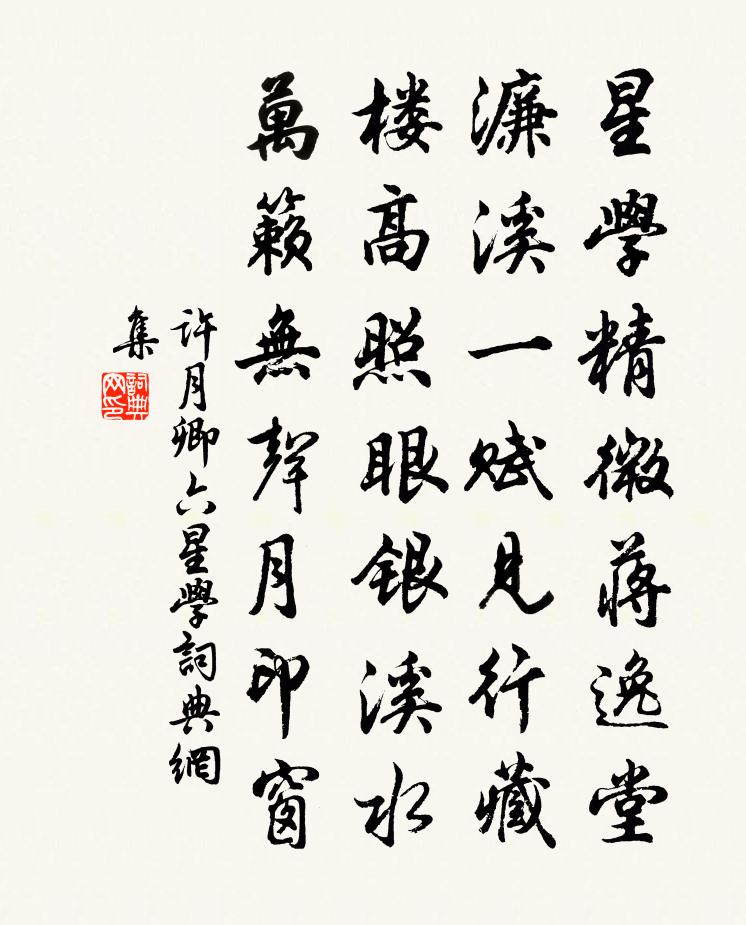 星學精微蔣逸堂
濂溪一赋見行藏
楼高照眼銀溪水
萬籟無聲月印窗
許月卿六星學詞典網
集
詞典网印